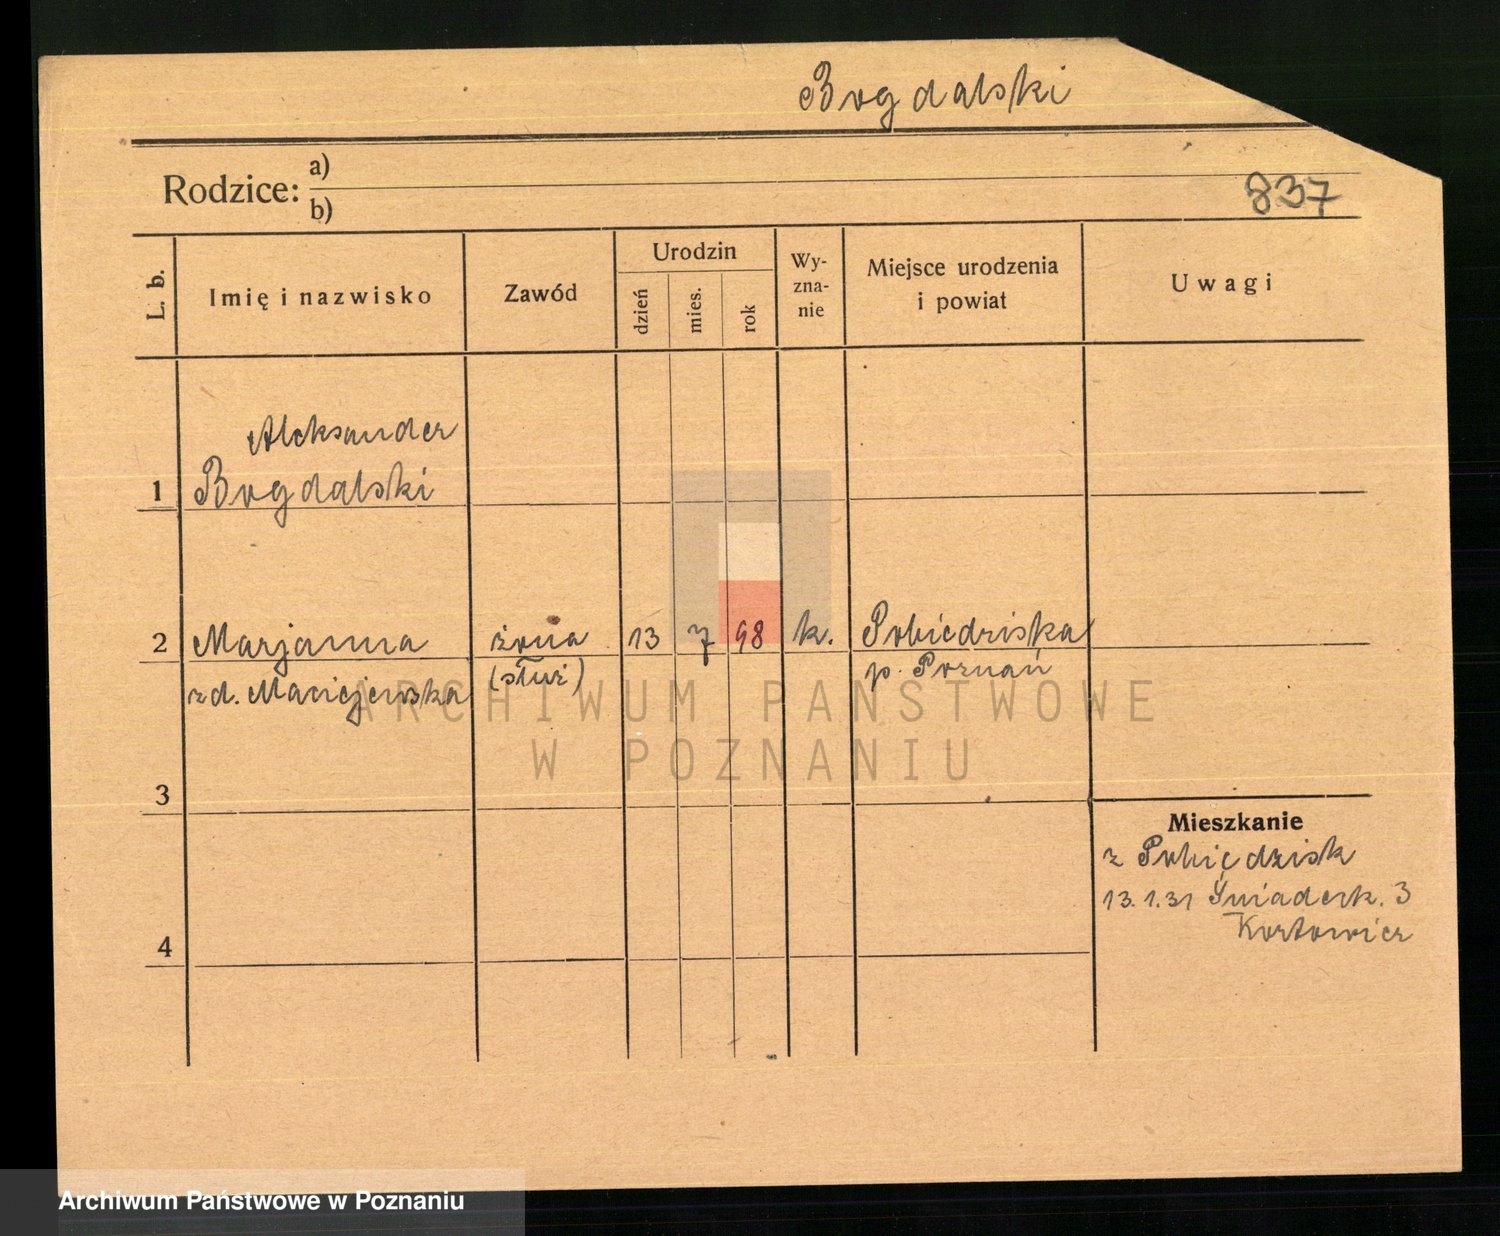 Bogdalski
Rodzice: a)
b)
837
L. b.
Imię i nazwisko
Zawód
Urodzin
dzień
mies.
rok
Wy-
zna-
nie
Miejsce urodzenia
i powiat
Uwagi
Aleksander
1 Bogdalski
2 Marjanna żona 13 7 98 k. Pobiedziska
zd. Maciejewska (służ) p. Poznań
ARCHIWUM PAŃSTWOWE
W POZNANIU
3
Mieszkanie
z Pobiedzisk
13.1.31 Śniadeck. 3
4
Archiwum Państwowe w Poznaniu